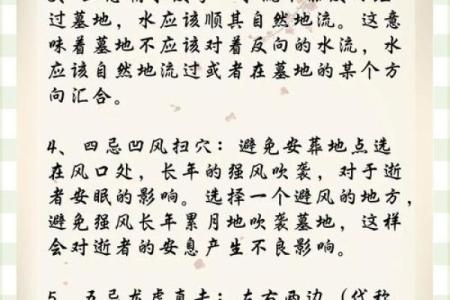 过墓地，水应该顺其自然地流。这意
味着墓地不应该对着反向的水流，水
应该自然地流过或者在墓地的某个方
向汇合。
4、四忌凹风扫穴：避免安葬地点选
在风口处，长年的强风吹袭，对于逝
者安眠的影响。选择一个避风的地方，
避免强风长年累月地吹袭墓地，这样
会对逝者的安息产生不良影响。
5、五忌龙虎直走：左右两边（代称